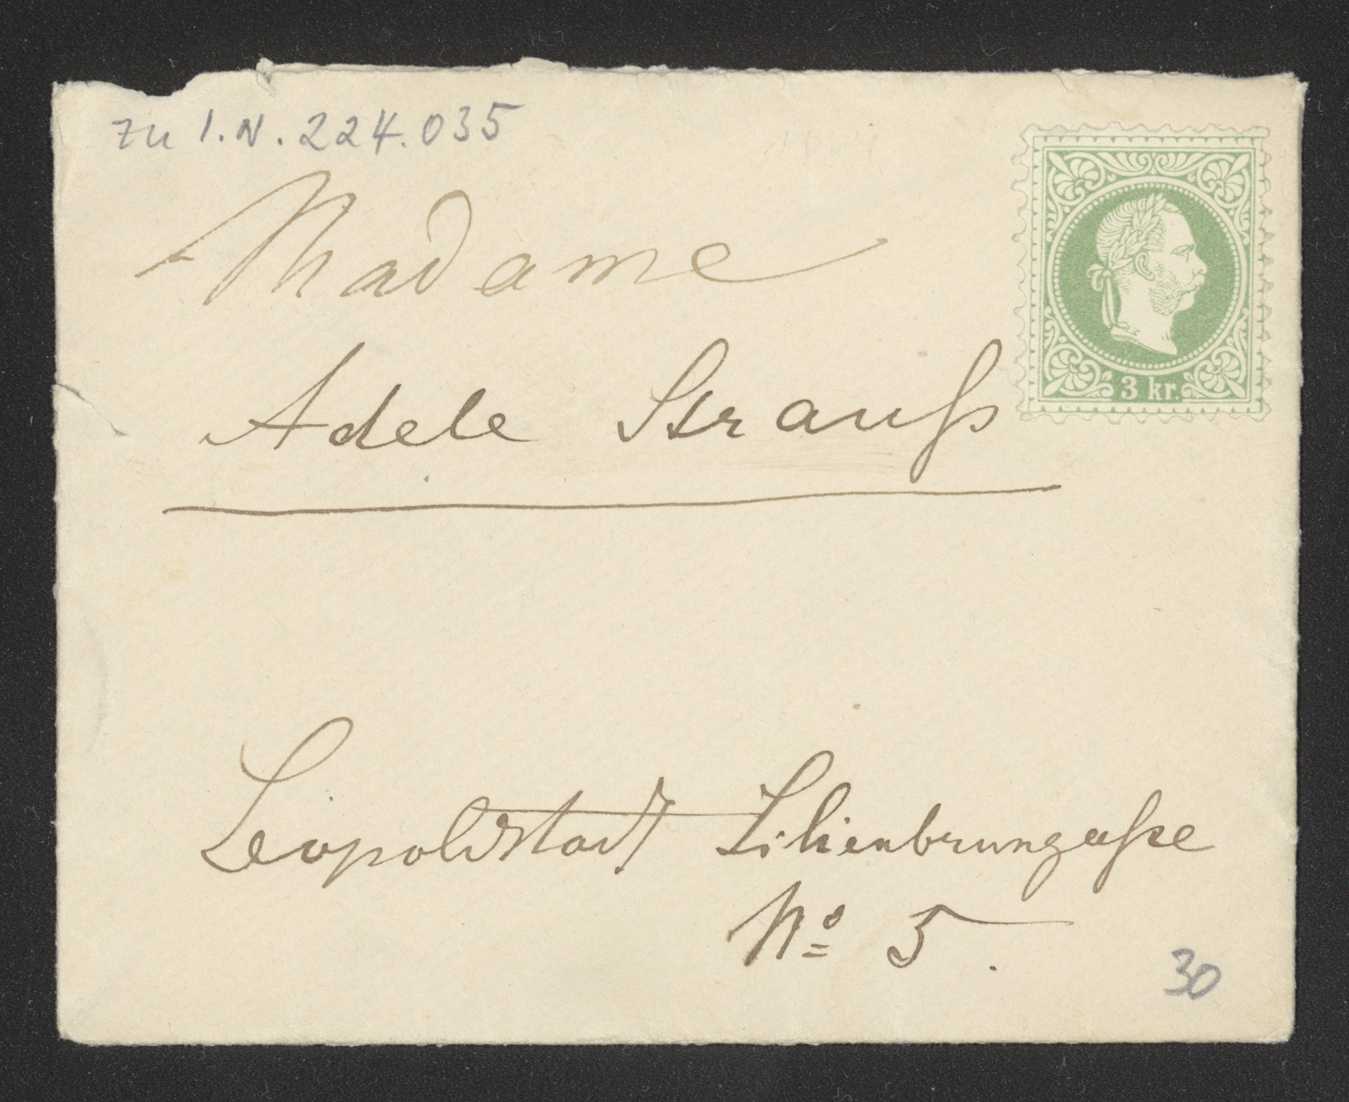 zu I.N. 224.035
Madame
3 kr.
Adele Strauß
Leopoldstadt Lilienbrungaße
No 5.
30